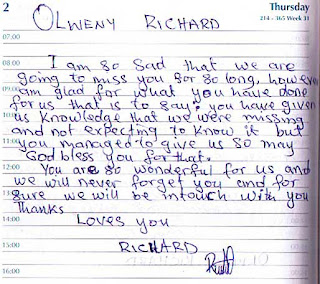 2 Thursday
214 - 365 Week 31
OLWENY RICHARD
07:00
08:00 I am so sad that we are
going to miss you for so long, however
09:00 am glad for what you have done
for us that is to say; you have given
10:00 us knowledge that we were missing
and not expecting to know it but
11:00 you managed to give us so may
God bless you for that.
12:00 You are so wonderful for us and
we will never forget you and for
13:00 sure we will be intouch with you
Thanks
14:00 LOVES YOU
15:00 RICHARD
16:00